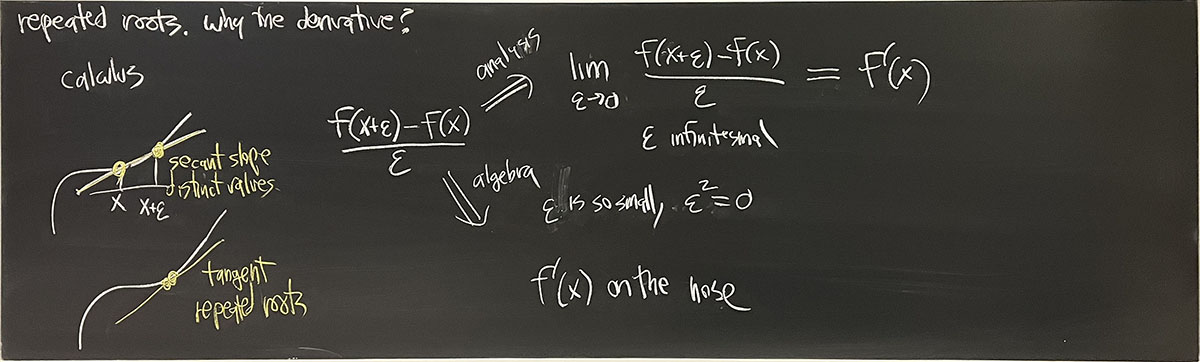 repeated roots. why the derivative?
calculus
secant slope
distinct values
x x+ε
tangent
repeated roots
f(x+ε)-f(x)
ε
analysis
algebra
lim f(x+ε)-f(x) = f'(x)
ε→0 ε
ε infinitesmal
ε is so small, ε²=0
f'(x) on the nose